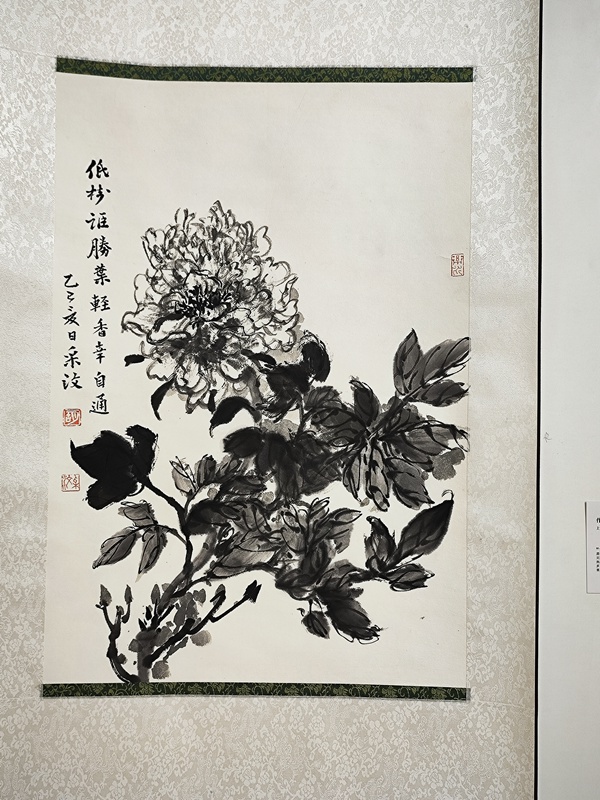 低枝詎勝葉輕香幸自通
乙巳夏日采汶